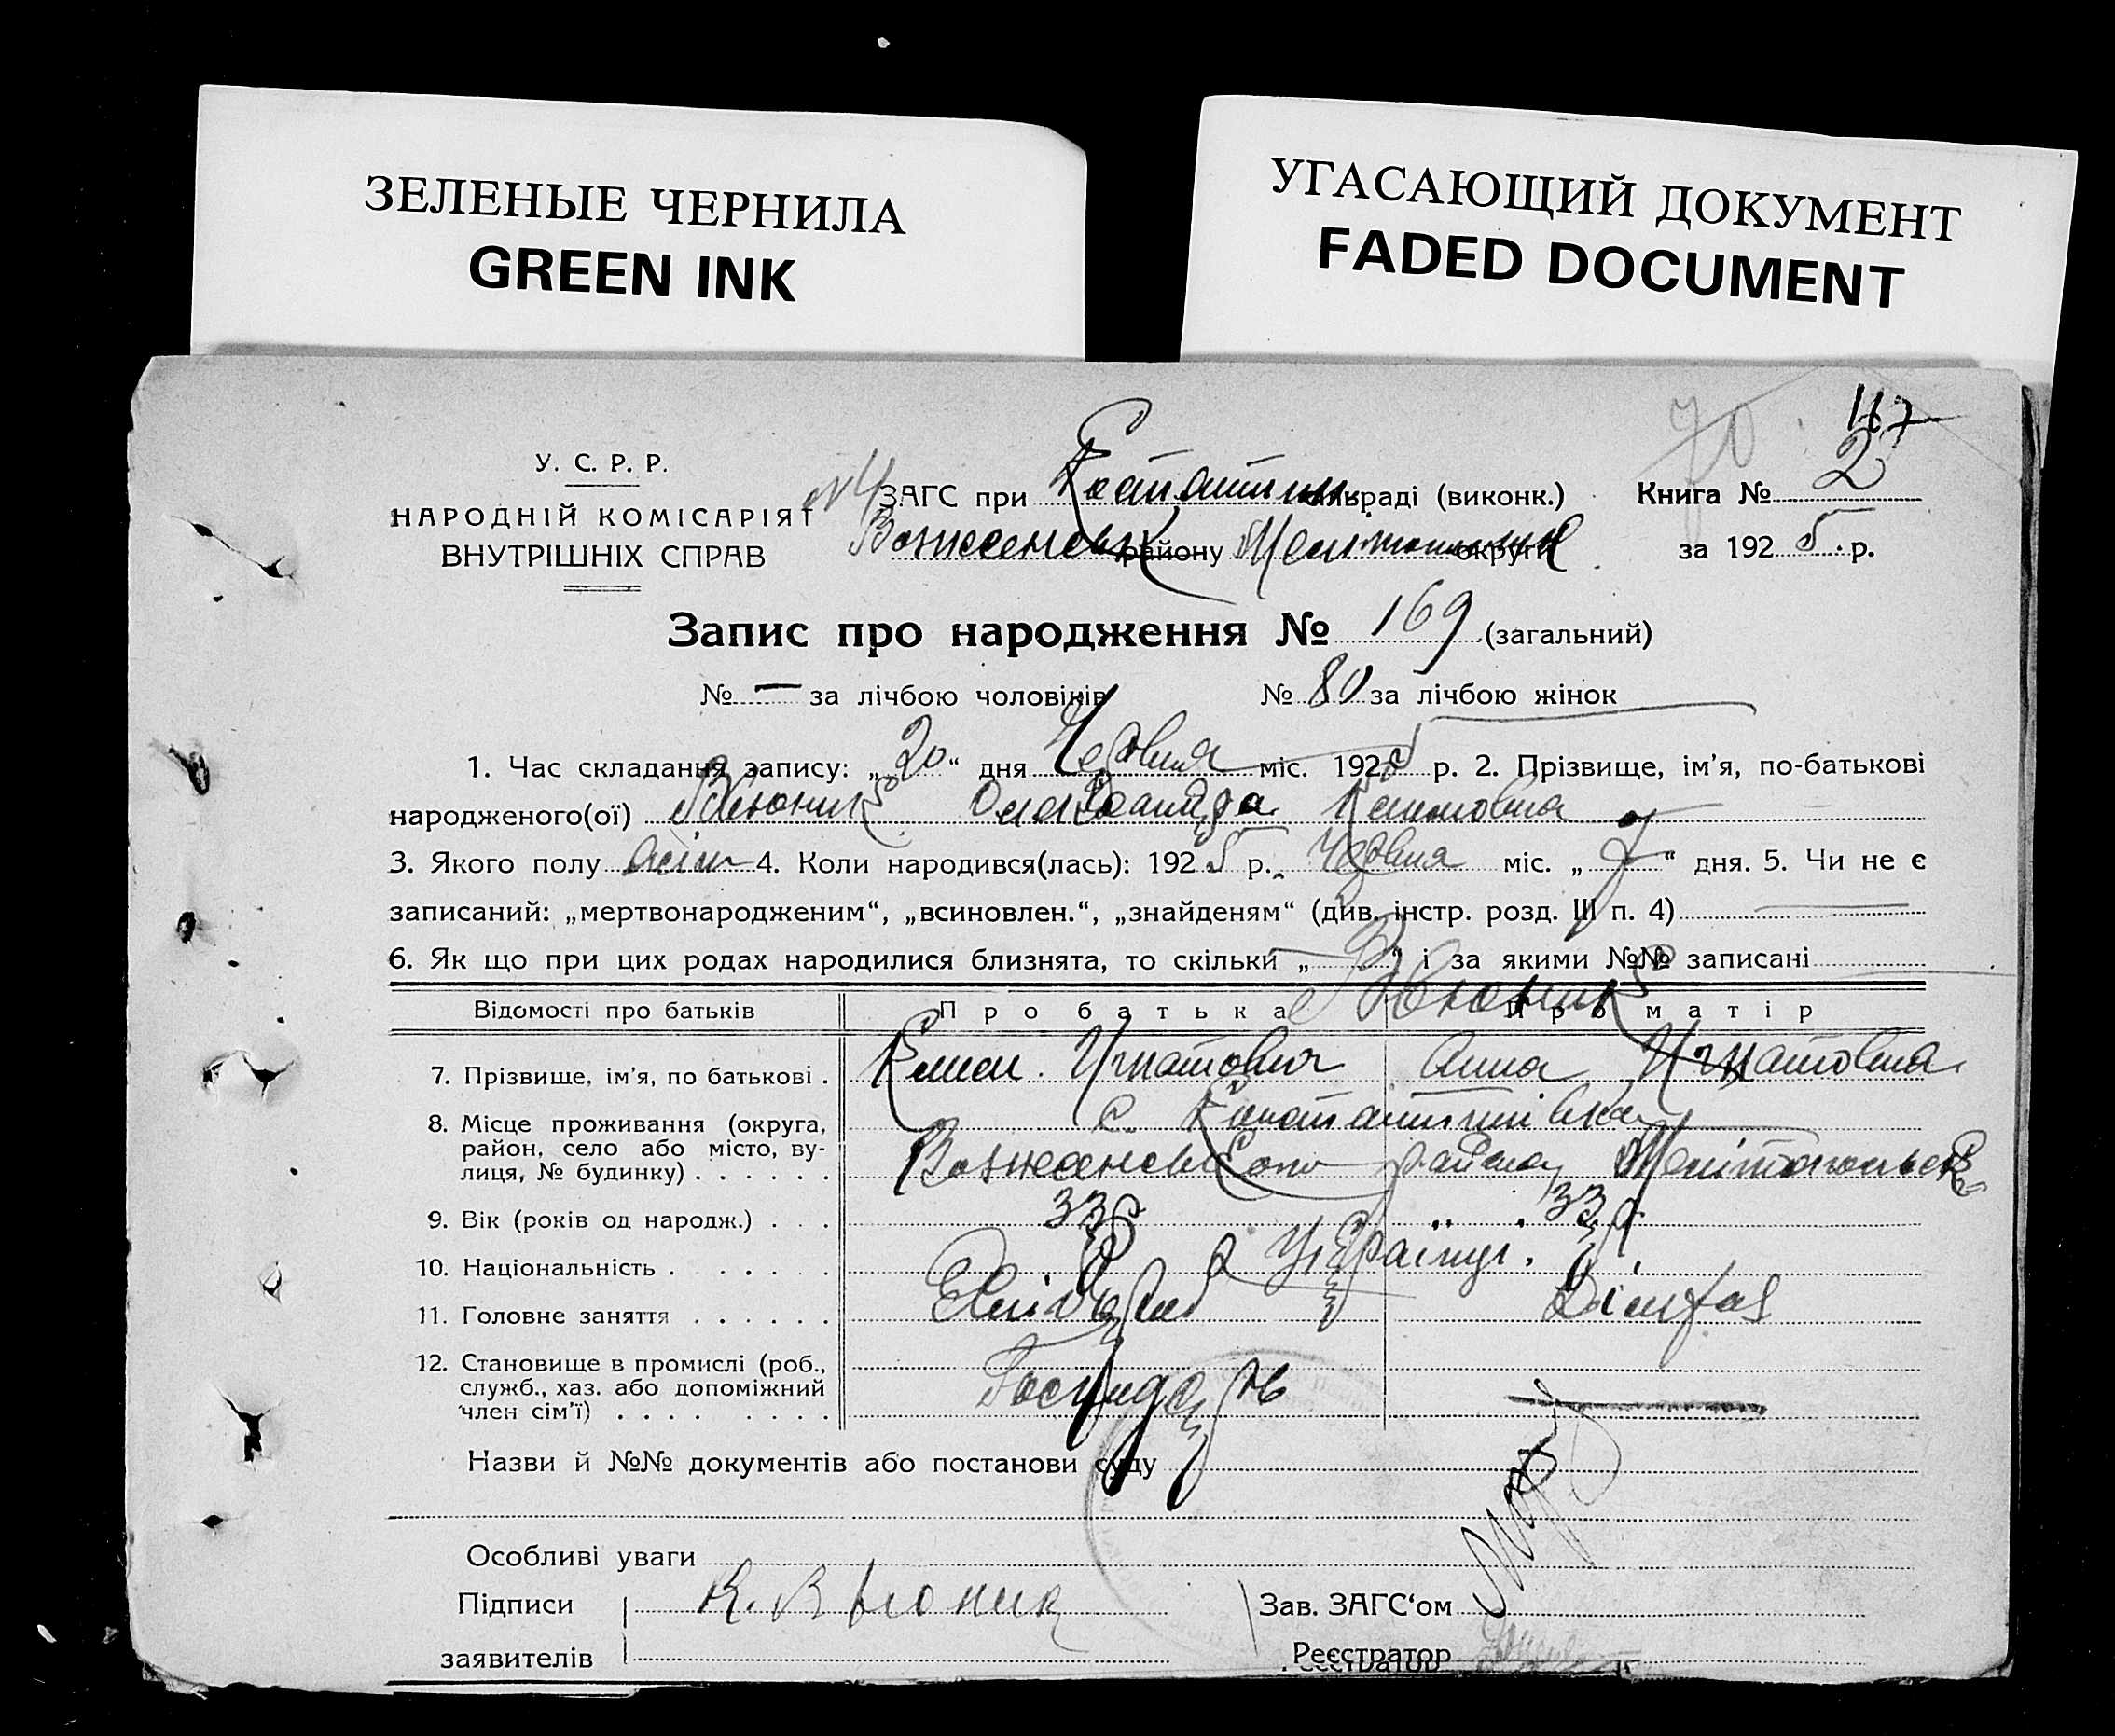 ЗЕЛЕНЫЕ ЧЕРНИЛА
GREEN INK
УГАСАЮЩИЙ ДОКУМЕНТ
FADED DOCUMENT
117
70
У. С. Р. Р.
НАРОДНІЙ КОМІСАРІЯТ
ВНУТРІШНІХ СПРАВ
ЗАГС при Костянтин. сільраді (виконк.)
району округи
Книга № 2
за 1925 р.
Запис про народження № 169 (загальний)
№ — за лічбою чоловіків № 80 за лічбою жінок
1. Час складання запису: „20“ дня Червня міс. 1925 р. 2. Прізвище, ім'я, по-батькові
народженого(ої) Олександра
3. Якого полу жін 4. Коли народився(лась): 1925 р. Червня міс. „7“ дня. 5. Чи не є
записаний: „мертвонародженим“, „всиновлен.“, „знайденям“ (див. інстр. розд. III п. 4)
6. Як що при цих родах народилися близнята, то скільки „ “ і за якими №№ записані
Відомості про батьків Про батька Про матір
7. Прізвище, ім'я, по батькові . Игнатович Анна Игнатовна
8. Місце проживання (округа, район, село або місто, вулиця, № будинку) . . . . . . с. Констянтинівка
району
9. Вік (років од народж.) . . . 33 р 33 р
10. Національність . . . . . Україн.
11. Головне заняття . . . . . . Хлібороб
12. Становище в промислі (роб., служб., хаз. або допоміжний член сім'ї) . . . . . . . . Господарь
Назви й №№ документів або постанови суду
Особливі уваги
Підписи К. Вьюник Зав. ЗАГС'ом
заявителів Реєстратор